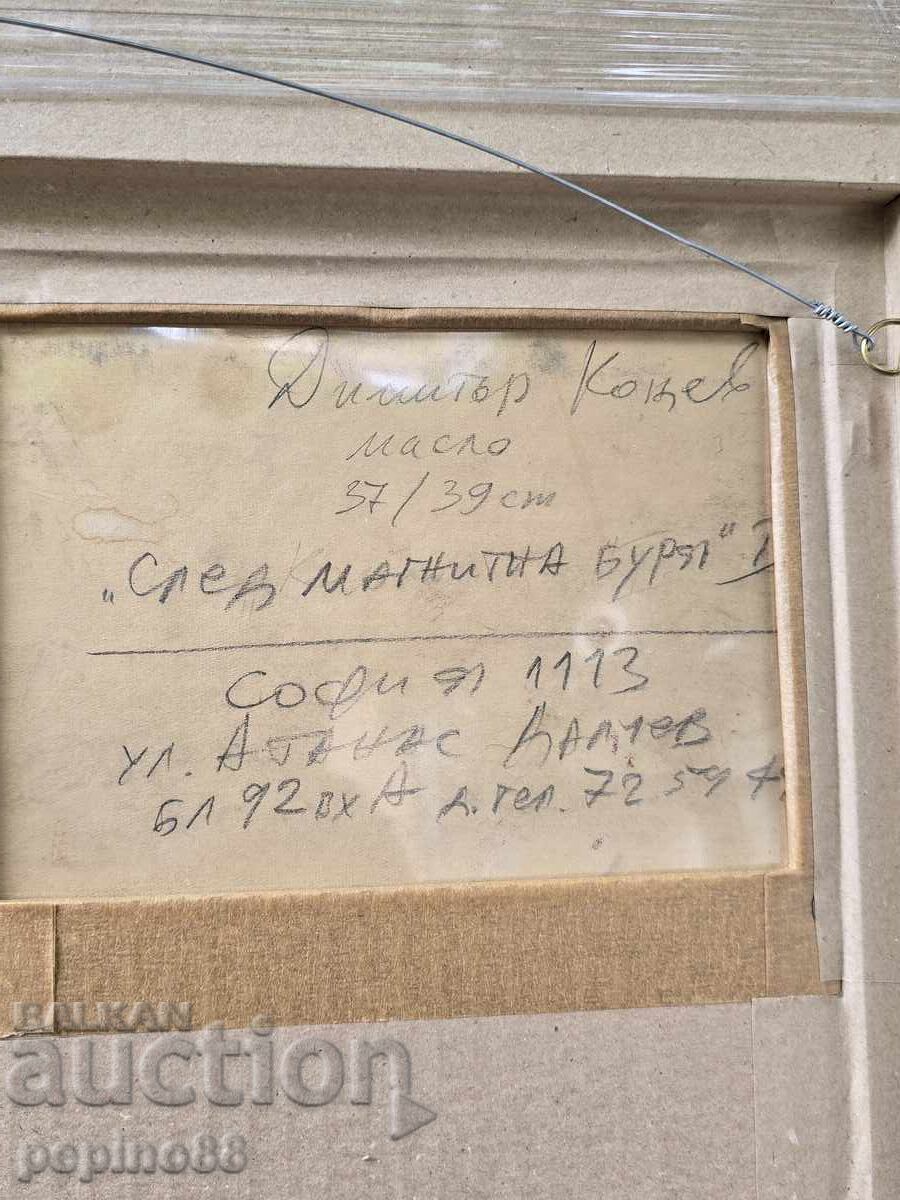 Димитър Коцев
масло
37/39 cm
„След магнитна буря" I
София 1113
ул. Атанас Далчев
бл 92 вх А д. тел. 72 59
BALKAN
auction
pepino88